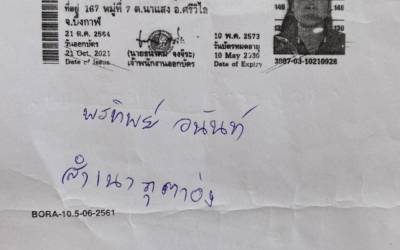 ที่อยู่ 167 หมู่ที่ 7 ต.นาแสง อ.ศรีวิไล
จ.บึงกาฬ
21 ต.ค. 2564
วันออกบัตร
21 Oct. 2021
Date of Issue
เจ้าพนักงานออกบัตร
10 พ.ค. 2573
วันบัตรหมดอายุ
10 May 2030
Date of Expiry
3807-03-10210928
พรทิพย์ อนันท์
สำเนาถูกต้อง
BORA-10.5-06-2561